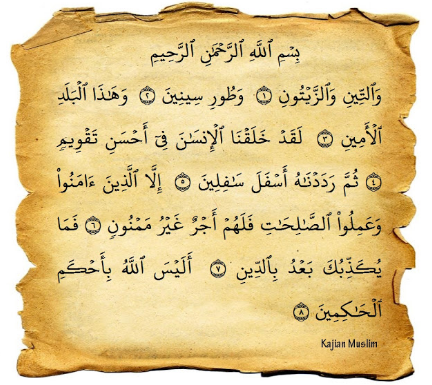 بِسْمِ ٱللَّهِ ٱلرَّحْمَٰنِ ٱلرَّحِيمِ
وَٱلتِّينِ وَٱلزَّيْتُونِ ۝١ وَطُورِ سِينِينَ ۝٢ وَهَٰذَا ٱلْبَلَدِ
ٱلْأَمِينِ ۝٣ لَقَدْ خَلَقْنَا ٱلْإِنسَٰنَ فِىٓ أَحْسَنِ تَقْوِيمٍ
۝٤ ثُمَّ رَدَدْنَٰهُ أَسْفَلَ سَٰفِلِينَ ۝٥ إِلَّا ٱلَّذِينَ ءَامَنُوا۟
وَعَمِلُوا۟ ٱلصَّٰلِحَٰتِ فَلَهُمْ أَجْرٌ غَيْرُ مَمْنُونٍ ۝٦ فَمَا
يُكَذِّبُكَ بَعْدُ بِٱلدِّينِ ۝٧ أَلَيْسَ ٱللَّهُ بِأَحْكَمِ
ٱلْحَٰكِمِينَ ۝٨
Kajian Muslim